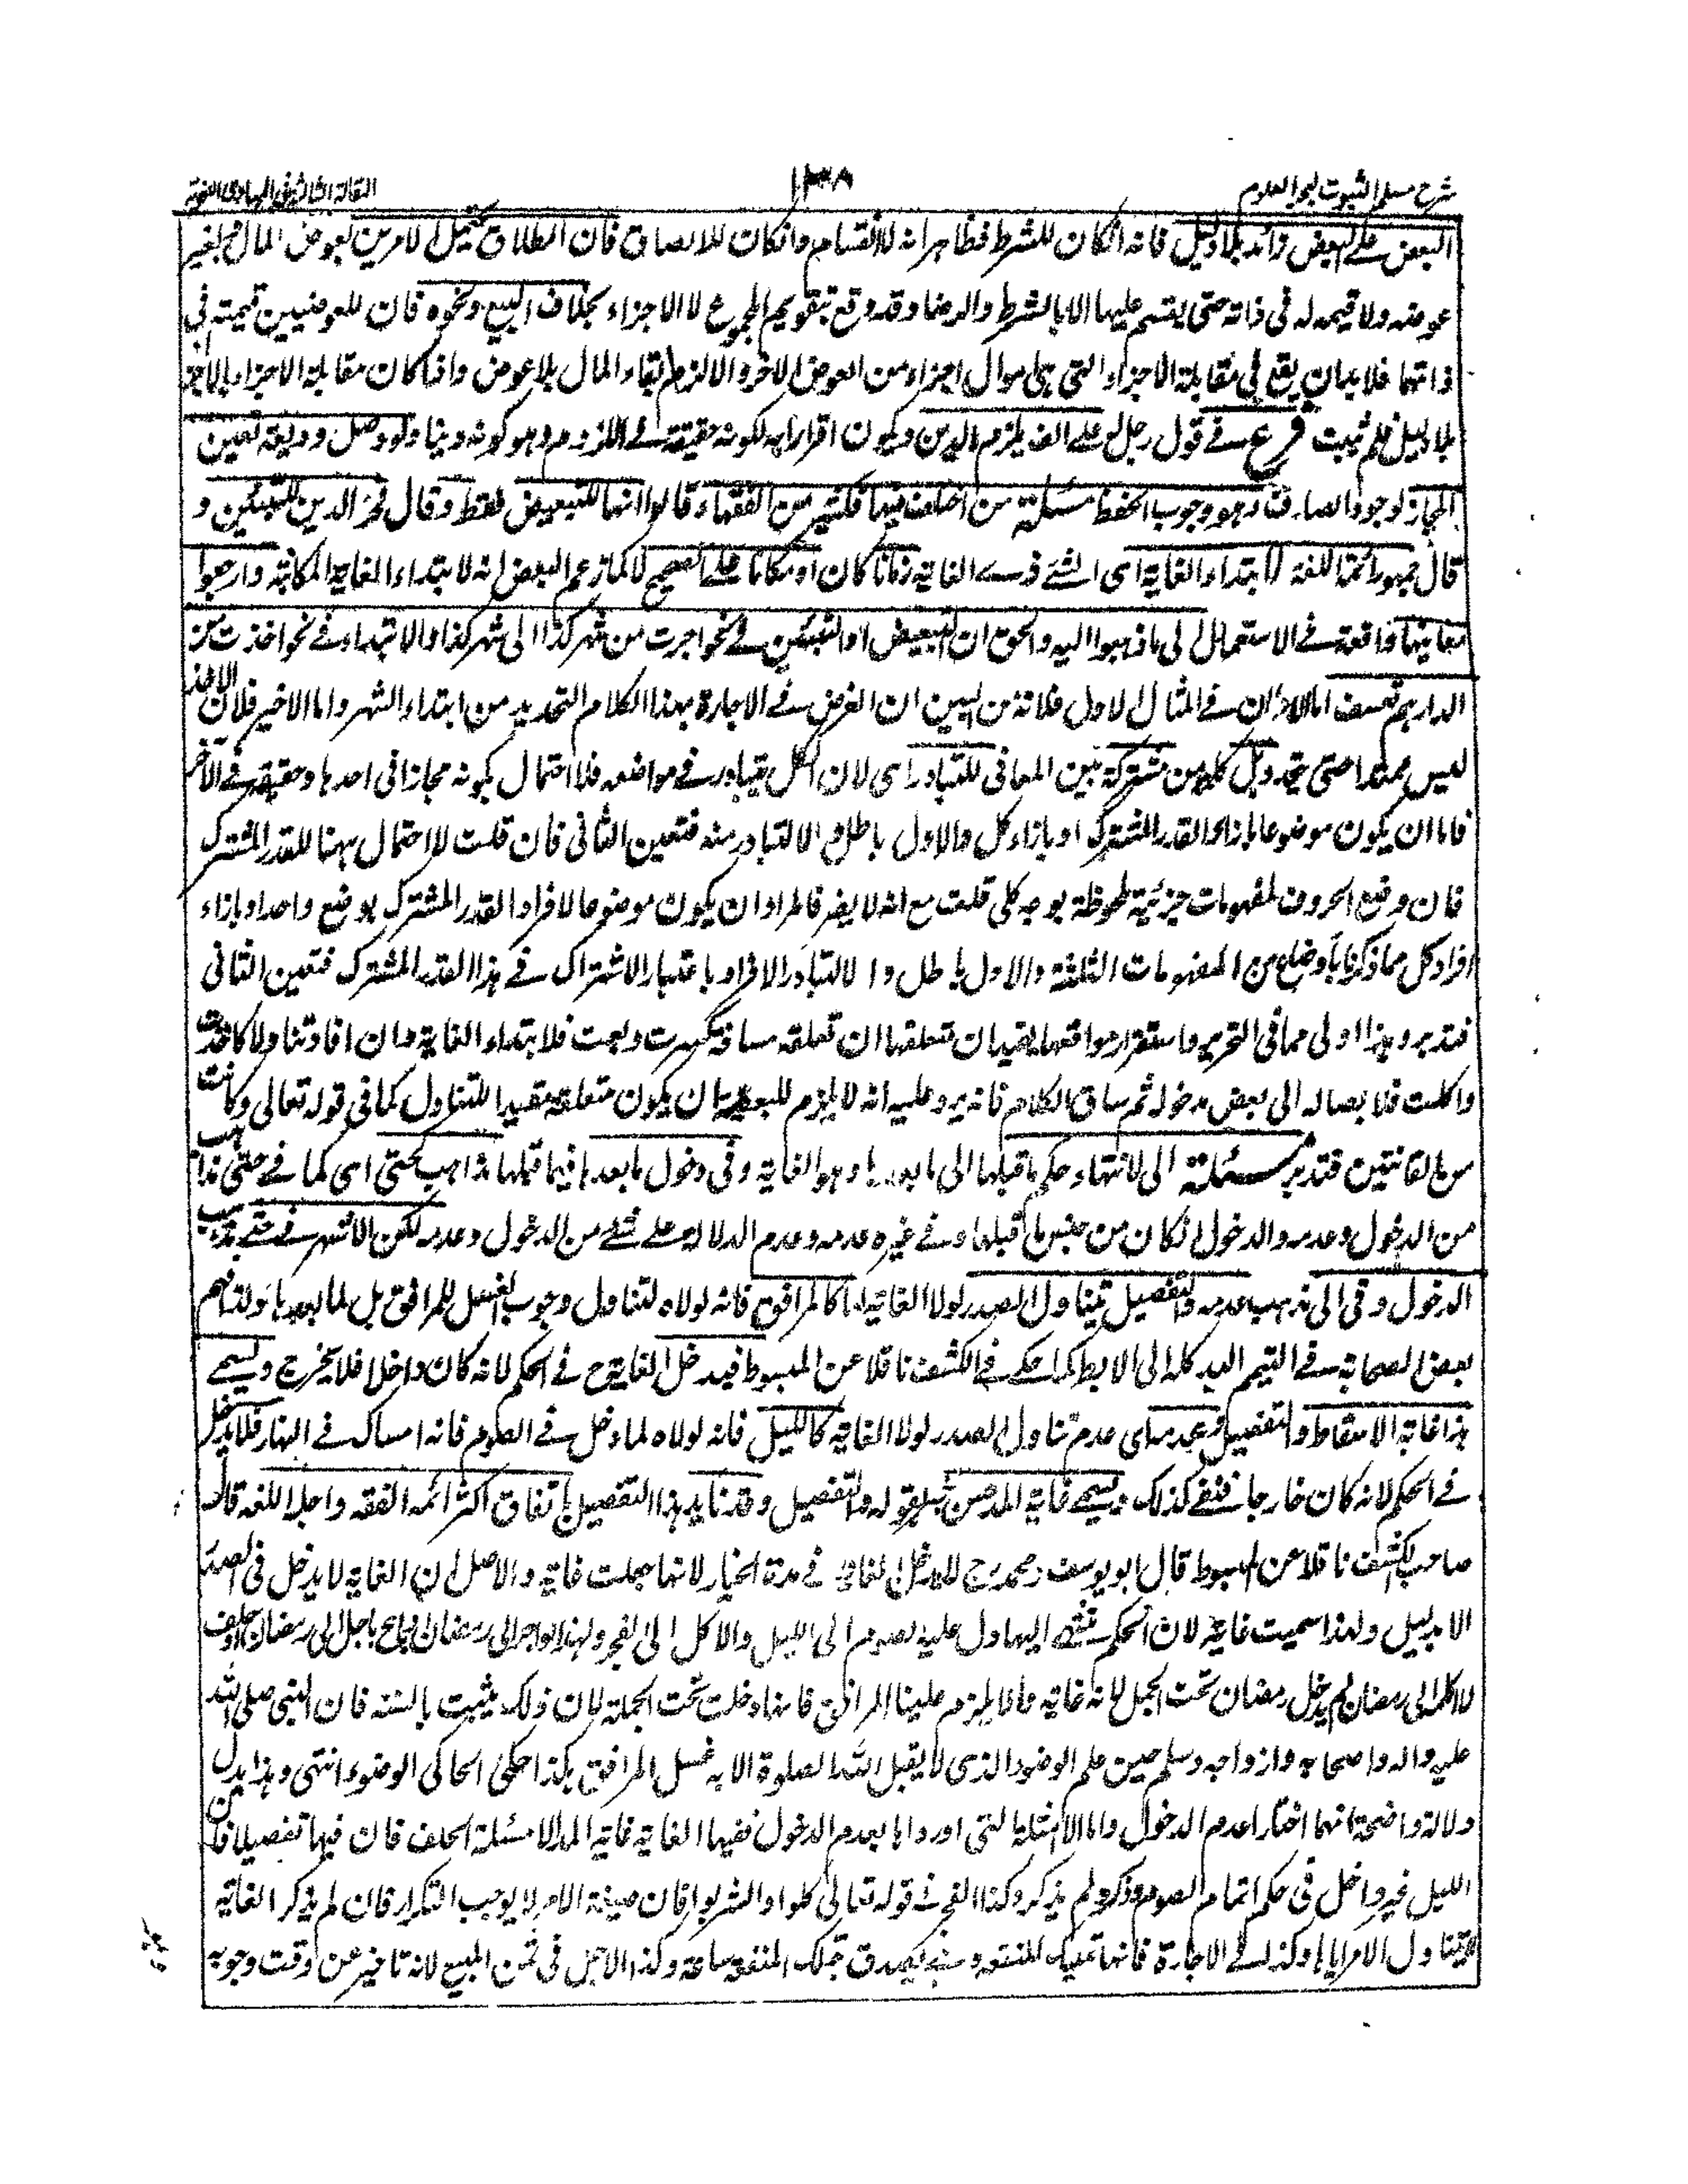 شرح مسلم الثبوت لبحر العلوم
١٣٨
المقالة الثالثة في المبادي اللغوية
البعض على البعض زائد بلا دليل فانه ان كان للشرط فظاهر انه لا انقسام وان كان للالصاق فان الطلاق يحتمل الامرين بعوض المال وبغير
عوضه ولا قيمه له في ذاته حتى يقسم عليها الا بالشرط والرضا وقد وقع بتقويم المجموع لا الاجزاء بخلاف البيع ونحوه فان للعوضين قيمة في
ذاتهما فلا بد ان يقع في مقابلة الاجزاء التي هي اموال اجزاء من العوض الاخر والا لزم بقاء المال بلا عوض واذا كان مقابلة الاجزاء بالاجزاء
بلا دليل فلم يثبت فرع في قول رجل له على الف يلزم الدين ويكون اقرارا به لكونه حقيقة في اللزوم وهو كونه دينا ولو وصل وديعة تعين
المجاز لوجود الصارف وهو وجوب الحفظ مسئلة من اختلف فيها فكثير من الفقهاء قالوا انها للتبعيض فقط وقال فخر الدين للتبيين و
قال جمهور ائمة اللغة لابتداء الغاية اى الشئ ذى الغاية زمانا كان او مكانا على الصحيح لا كما زعم البعض انه لابتداء الغاية المكانية وارجعوا
معانيها واقعة في الاستعمال الى ما ذهبوا اليه والحق ان التبعيض او التبيين في نحو اجرت من شهر كذا الى شهر كذا والابتداء في نحو اخذت من
الدراهم تعسف اما الاولان في المثال الاول فلانه من البين ان الغرض في الاجارة بهذا الكلام التحديد من ابتداء الشهر واما الاخير فلان الاخذ
ليس ممتدا حتى يتحدد بل كلمة من مشتركة بين المعانى للتبادر اى لان الكل يتبادر في مواضعه فلا احتمال لكونه مجازا في احدها وحقيقة في الآخر
فاما ان يكون موضوعا بازاء القدر المشترك او بازاء كل والاول باطل والا لتبادر منه فتعين الثانى فان قلت لا احتمال ههنا للقدر المشترك
فان وضع الحروف لمفهومات جزئية ملحوظة بوجه كلى قلت مع انه لا يضر فالمراد ان يكون موضوعا لافراد القدر المشترك بوضع واحد او بازاء
افراد كل مما ذكرنا باوضاع من المفهومات الثلثة والاول باطل والا لتبادر الافراد باعتبار الاشتراك في هذا القدر المشترك فتعين الثانى
فتدبر وهذا اولى مما في التحرير واستقرار مواقعها يفيد ان متعلقها ان تعلق مسافة كسرت وبعت فلابتداء الغاية وان افاد تناولا كاخذت
واكلت فلايصاله الى بعض مدخوله ثم ساق الكلام فانه يرد عليه انه لا يلزم للبعضية ان يكون متعلقه مفيدا للتناول كما في قوله تعالى وكانت
من القانتين فتدبر مسئلة الى لانتهاء حكم ما قبلها الى ما بعدها وهو الغاية وفي دخول ما بعدها فيما قبلها مذاهب كحتى اى كما في حتى مذاهب
من الدخول وعدمه والدخول ان كان من جنس ما قبلها وفي غيره عدمه وعدم الدلالة على شئ من الدخول وعدمه لكن الاشهر في حتى مذهب
الدخول وفي الى مذهب عدمه والتفصيل بتناول الصدر لولا الغاية لها كالمرافق فانه لولاه لتناول وجوب الغسل للمرافق بل لما بعدها ولذا فهم
بعض الصحابة في التيمم اليد كله الى الابط كما حكى في الكشف ناقلا عن المبسوط فيدخل الغاية ح في الحكم لانه كان داخلا فلا يخرج ويسمى
هذا غاية الاسقاط والتفصيل وعدمه اى عدم تناول الصدر لولا الغاية كالليل فانه لولاه لما دخل في الصوم فانه امساك في النهار فلا يدخل
في الحكم لانه كان خارجا فبقى كذلك ويسمى غاية المد حسن لقوله والتفصيل وقد نايد بهذا التفصيل باتفاق اكثر ائمة الفقه واجلاء اللغة قال
صاحب الكشف ناقلا عن المبسوط قال ابو يوسف ومحمد رح لا يدخل الغاية في مدة الخيار لانها جعلت غاية والاصل ان الغاية لا يدخل في الصدر
الا بدليل ولهذا سميت غاية لان الحكم ينتهى اليها دل عليه الصوم الى الليل والاكل الى الفجر ولهذا لو اجر الى رمضان او باع باجل الى رمضان او حلف
لا اكلم الى رمضان لم يدخل رمضان تحت الجمل لانه غاية ولا يلزم علينا المرافق فانها دخلت تحت الجملة لان ذلك يثبت بالسنة فان النبى صلى الله
عليه واله واصحابه وازواجه وسلم حين علم الوضوء الذى لا يقبل الله الصلوة الا به غسل المرافق هكذا حكى الحاكى الوضوء انتهى وهذا يدل
دلالة واضحة انهما اختارا عدم الدخول واما الامثلة التى اوردوها بعدم الدخول ففيها الغاية غاية المد الا مسئلة الحلف فان فيها تفصيلا فان
الليل غير داخل في حكم اتمام الصوم ذكر او لم يذكر وكذا الفجر في قوله تعالى كلوا واشربوا فان صيغة الامر لا يوجب التكرار فان لم يذكر الغاية
لا يتناول الامر اياها وكذلك الاجارة فانها تمليك المنفعة وهى يصدق بتملك المنفعة ساعة وكذا الاجل في ثمن المبيع لانه تاخير عن وقت وجوبه